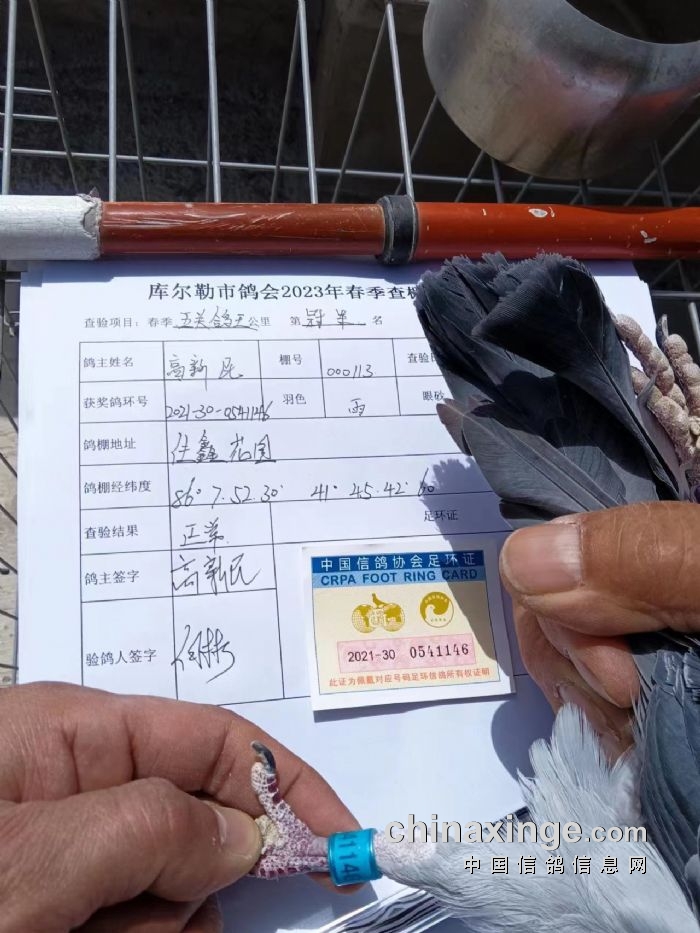 库尔勒市鸽会2023年春季查棚
查验项目：春季 五关鸽王 公里 第 冠军 名
鸽主姓名 高新民 棚号 000113 查验日
获奖鸽环号 2021-30-0541146 羽色 雨 眼砂
鸽棚地址 佳鑫花园
鸽棚经纬度 86° 7. 52. 30. 41° 45. 42. 60
查验结果 正常 足环证
鸽主签字 高新民
验鸽人签字
中国信鸽协会足环证
CRPA FOOT RING CARD
2021-30 0541146
此证为佩戴对应号码足环信鸽所有权证明
41146
chinaxinge.com
中国信鸽信息网